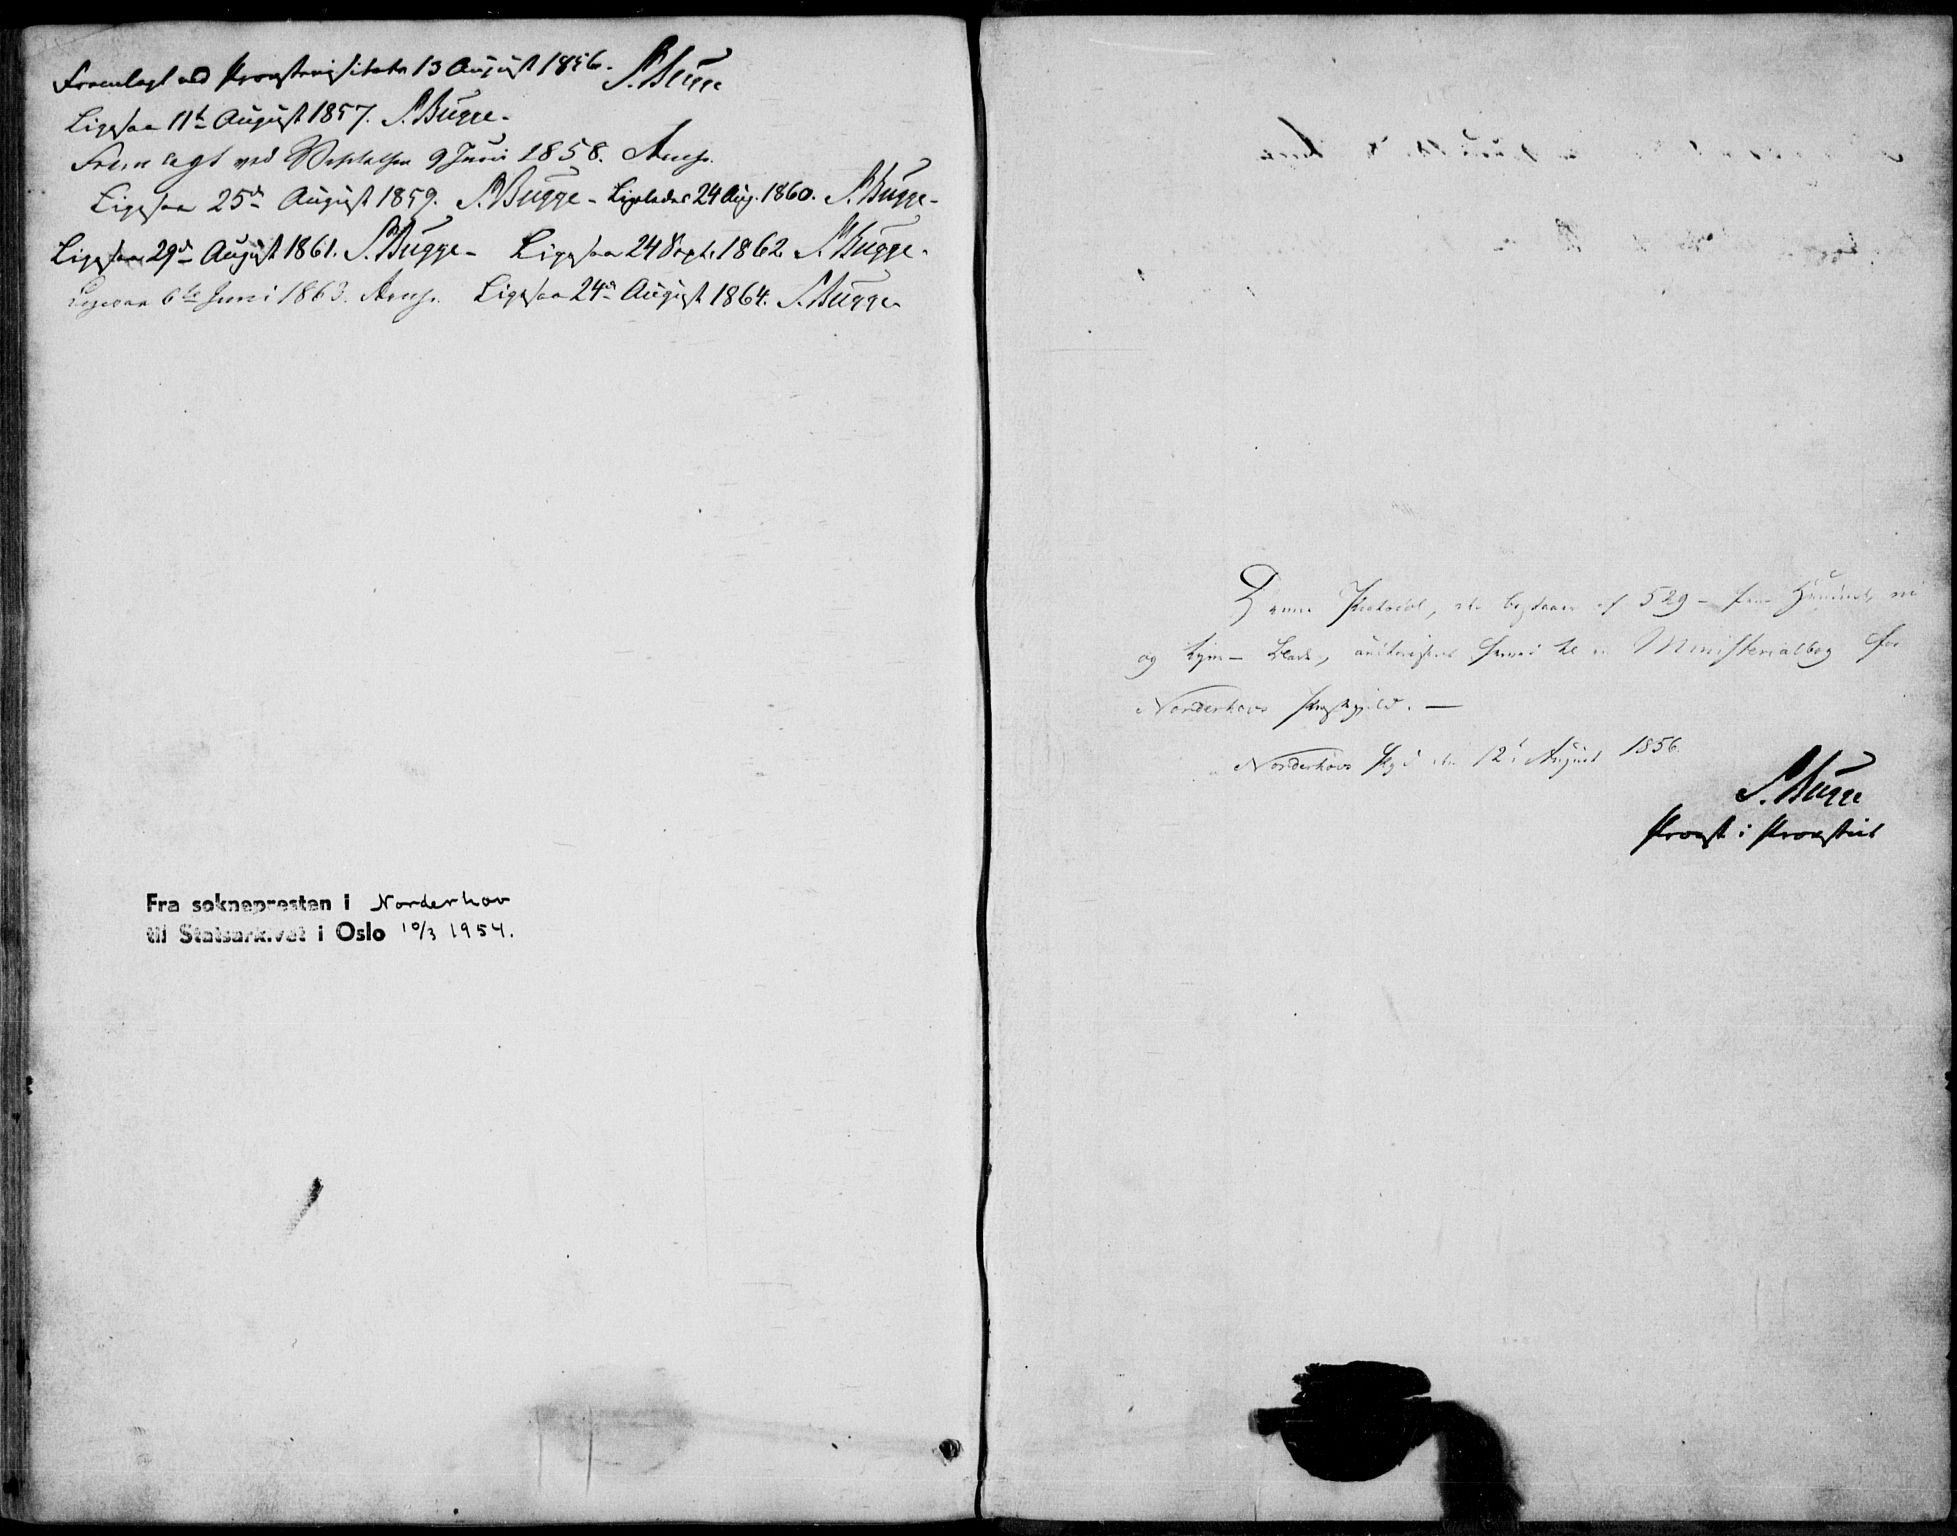 Fremlagt ved Provstevisitats 13 August 1856. S. Bugge
Ligesaa 11te August 1857. S. Bugge.
Fremlagt ved Visitatsen 9 Juni 1858. Arup.
Ligesaa 25de August 1859. S. Bugge - Ligeledes 24 Aug. 1860. S. Bugge -
Ligesaa 29de August 1861. S. Bugge - Ligesaa 24 Sept. 1862 S. Bugge.
Ligesaa 6te Juni 1863. Arup. Ligesaa 24de August 1864. S. Bugge
Fra sokneprestan i Norderhov
til Statsarkivet i Oslo 10/3 1954.
Denne Protokol, der bestaaer af 529 - fem Hundrede, ni
og tyve - Blade, autoriseres herved til en Ministerialbog for
Norderhovs Præstegjeld. -
Norderhovs Pgd den 12te August 1856.
S. Bugge
Provst i Provstiet